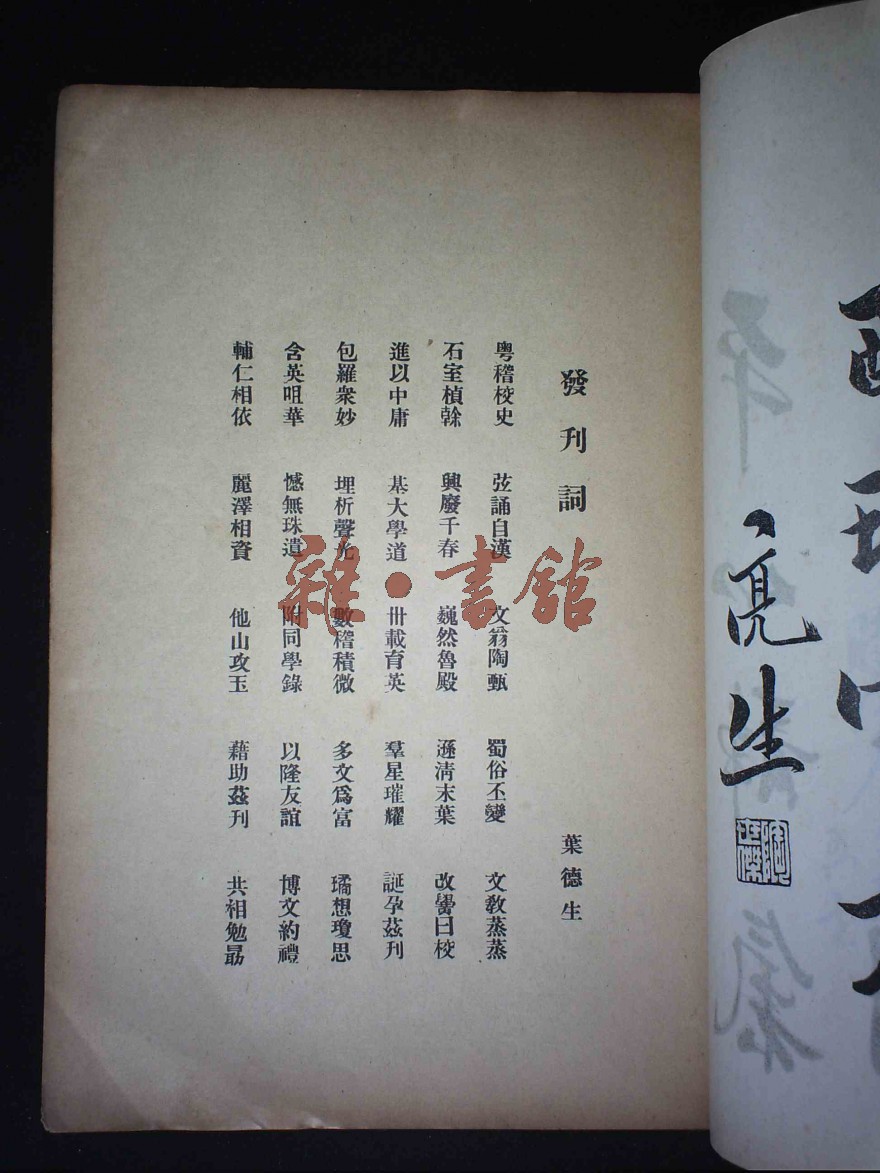 發刊詞 葉德生
粤稽校史 弦誦自漢 文翁陶甄 蜀俗丕變 文敎蒸蒸
石室楨榦 興廢千春 巍然魯殿 遜淸末葉 改黌曰校
進以中庸 基大學道 卅載育英 羣星璀耀 誕孕茲刊
包羅衆妙 埋析聲光 數稽積微 多文爲富 璚想瓊思
含英咀華 憾無珠遺 附同學錄 以隆友誼 博文約禮
輔仁相依 麗澤相資 他山攻玉 藉助茲刊 共相勉勗
亮生
雜·書館